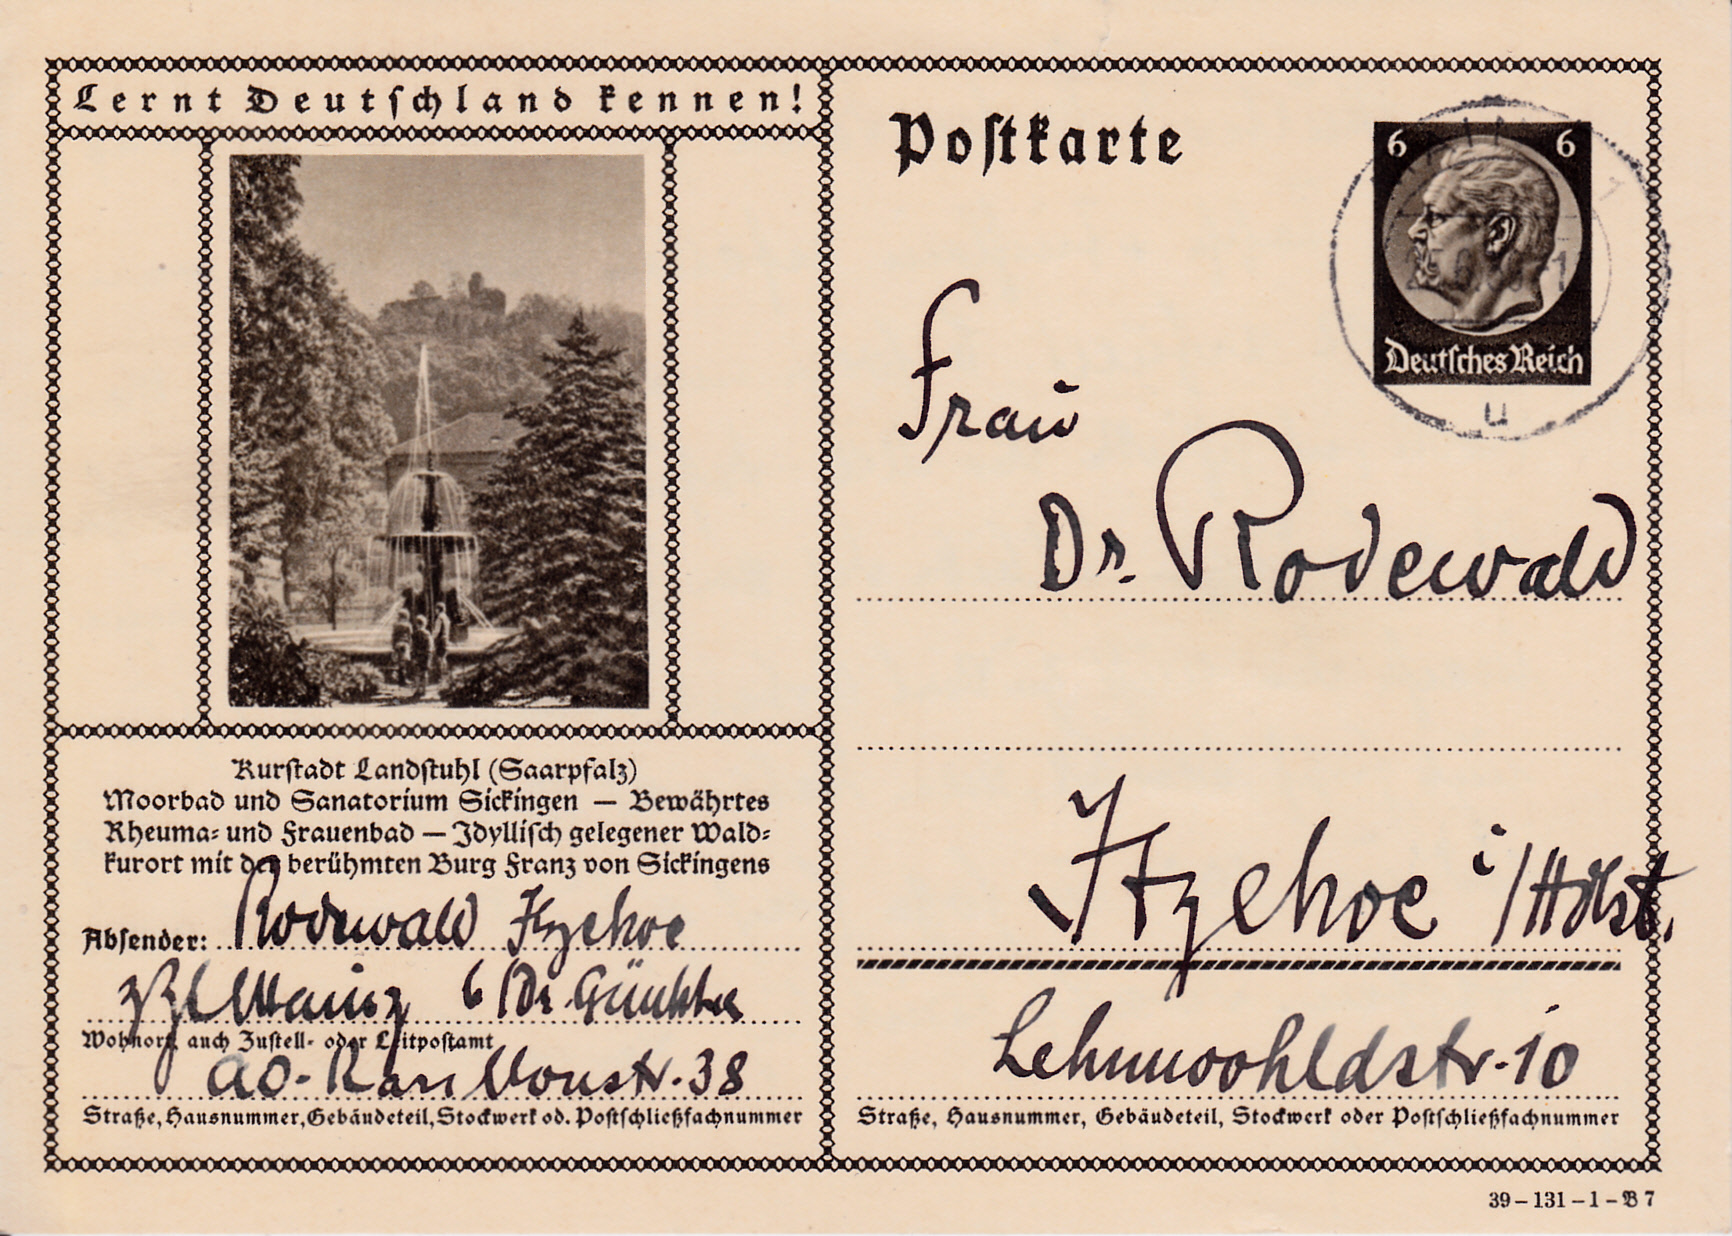 Lernt Deutschland kennen!
Kurstadt Landstuhl (Saarpfalz)
Moorbad und Sanatorium Sickingen — Bewährtes
Rheuma- und Frauenbad — Idyllisch gelegener Wald-
kurort mit der berühmten Burg Franz von Sickingens
Absender: Rodewald Itzehoe
Mainz b/Dr.
Wohnort, auch Zustell- oder Leitpostamt
38
Straße, Hausnummer, Gebäudeteil, Stockwerk od. Postschließfachnummer
Postkarte
6 6
Deutsches Reich
u
Frau
Dr. Rodewald
Itzehoe i/Holst.
Lehmwohldstr. 10
Straße, Hausnummer, Gebäudeteil, Stockwerk oder Postschließfachnummer
39-131-1-B 7